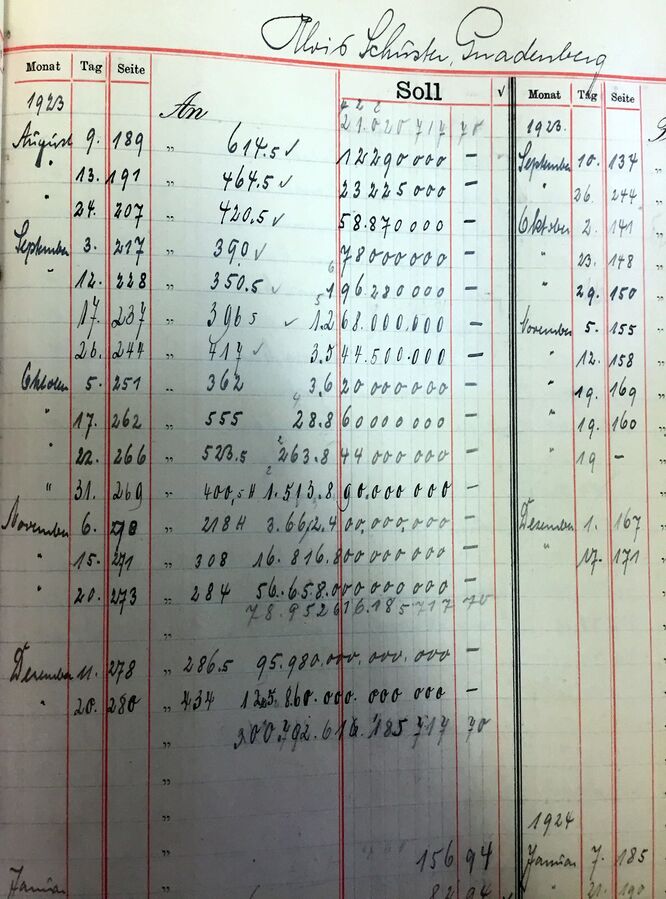 Alois Schuster, Gnadenberg
Monat Tag Seite Soll √ Monat Tag Seite
1923 An 21.020717 70 1923.
August 9. 189 „ 614.5 ✓ 12290000 – September 10. 134
" 13. 191 „ 464.5 ✓ 23225000 – " 26. 244
" 24. 207 „ 420.5 ✓ 58.870000 – Oktober 2. 141
September 3. 217 „ 390 ✓ 78000000 – " 23. 148
" 12. 228 „ 350.5 ✓ 196280000 – " 29. 150
17. 237 „ 396 5 ✓ 1.268.000.000 – November 5. 155
26. 244 „ 417 ✓ 3.544.500.000 – " 12. 158
Oktober 5. 251 „ 362 3.620000000 – " 19. 169
" 17. 262 „ 555 28.860000000 – " 19. 160
" 22. 266 „ 523.5 263.844000000 – " 19 –
" 31. 269 „ 400,5 H 1.513.890.000000 –
November 6. 270 „ 218 H 3.662.400,000,000 – Dezember 1. 167
" 15. 271 „ 308 16.816.800000000 – " 17. 171
" 20. 273 „ 284 56.658.000000000 –
78.952616.185717 70
„
Dezember 11. 278 „ 286.5 95.980.000.000.000 –
" 20. 280 „ 434 125.860.000.000000 –
300.792.616.185717 70
„
„
„
1924
156 94 Januar 7. 185
Januar 82 94 " 21. 190